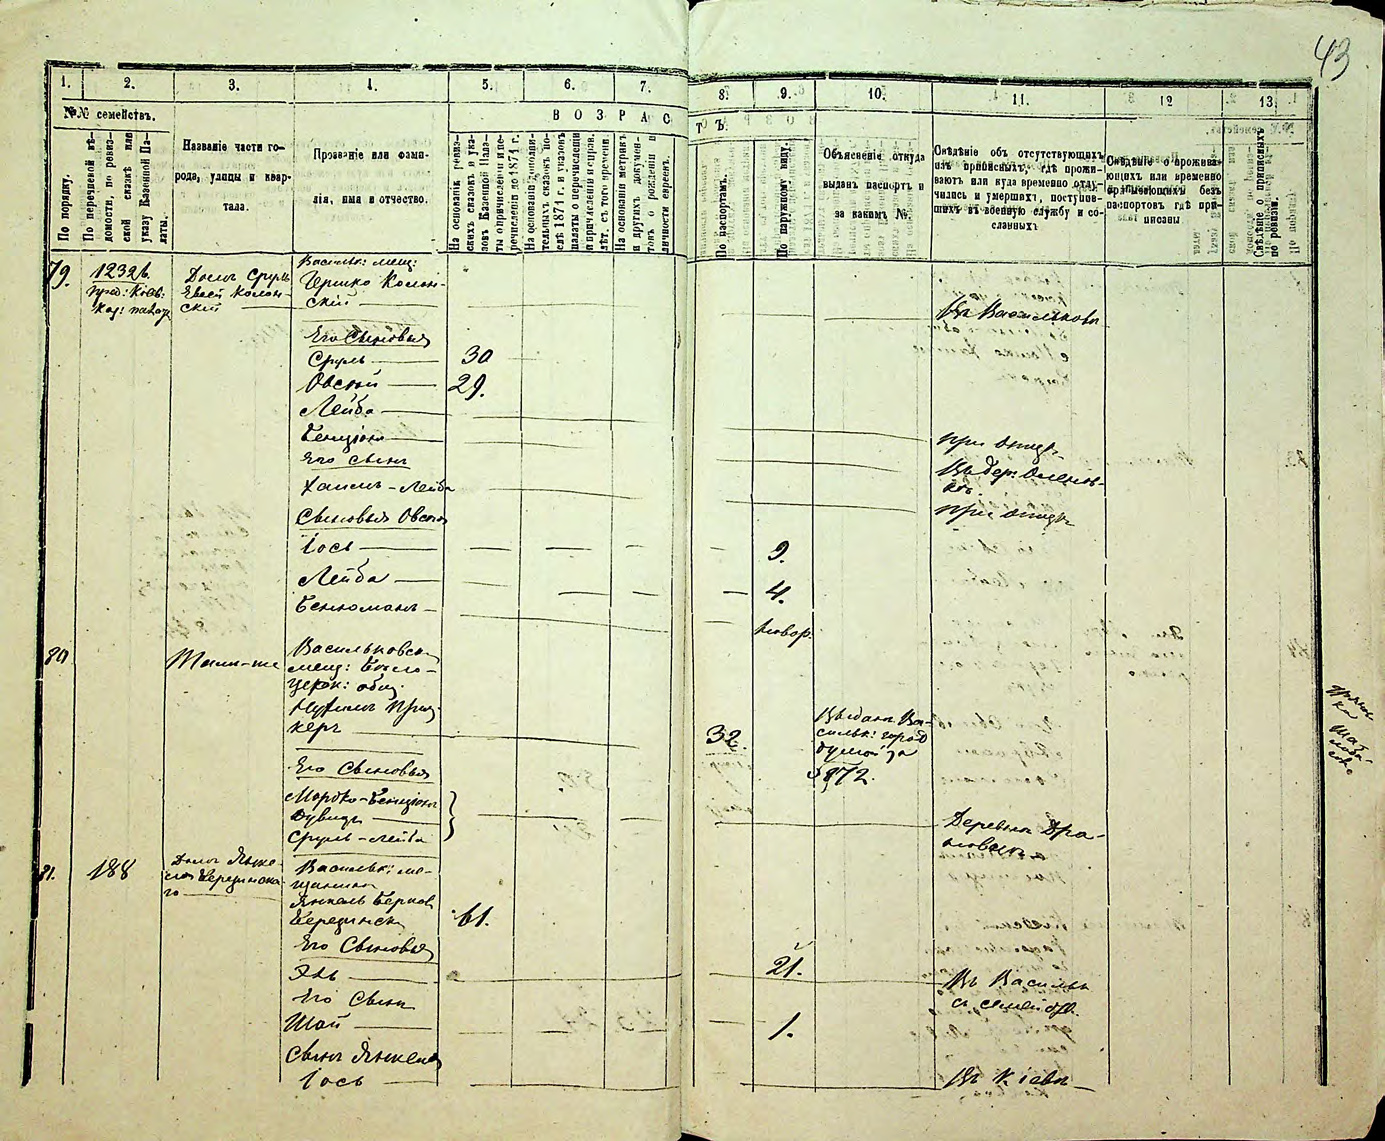 43
1.
2.
3.
4.
5.
6.
7.
8.
9.
10.
11.
12
13.
№№ семействъ.
По порядку.
По перечневой вѣ-
домости, по ревиз-
ской сказкѣ или
указу Казенной Па-
латы.
Названіе части го-
рода, улицы и квар-
тала.
Прозваніе или фами-
лія, имя и отчество.
ВОЗРАС
ТЪ.
На основаніи ревиз-
скихъ сказокъ и ука-
зовъ Казенной Пала-
ты о причисленіи и пе-
речисленіи до 1874 г.
На основаніи дополни-
тельныхъ сказокъ по-
слѣ 1874 г. и указовъ
палаты о перечисленіи
и причисленіи и справ.
лѣт. съ того времени.
На основаніи метрикъ
и другихъ докумен-
товъ о рожденіи и
личности евреевъ.
По паспортамъ.
По наружному виду.
Объясненіе откуда
выданъ паспортъ и
за какимъ №.
Свѣдѣніе объ отсутствующихъ
изъ приписныхъ, гдѣ прожи-
ваютъ или куда временно отлу-
чились и умершихъ, поступив-
шихъ въ военную службу и со-
сланныхъ
Свѣдѣніе о прожива-
ющихъ или временно
проживающихъ безъ
паспортовъ гдѣ при-
писаны.
Свѣдѣніе о приписныхъ
по ревизіи.
79.
1232
пред: Кіев:
Каз: палат
Домъ Сруль
Евсей Колон-
скій
Васильк: мещ:
Гершко Колон-
скій
Въ Васильковѣ
Его Сыновья
Сруль 30
Овсей 29.
Лейба
Бенціонъ при отцѣ
Его сынъ
Хаимъ-Лейба при отцѣ
Сыновья Овсея
Іось 9.
Лейба 4.
Беніоманъ новор.
80
Васильковск.
мещ: Бѣло-
церк: общ.
32.
Выданъ Ва-
сильк: город
думой за
1872.
Его Сыновья
Мордко-Бенціонъ
Дувидъ
Сруль-Лейба
Деревня Дра-
81.
188
Домъ Янке-
ля Березинска-
го
Васильк: ме-
щанинъ
Янкель Берков
Березинск 61.
Его Сыновья
21.
Въ Васильк
съ семейств.
Его Сынъ
Шай 1.
Сынъ Янкеля
Іось Въ Кіевѣ